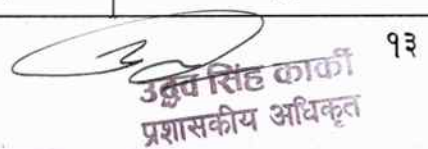 १३
उद्धव सिंह कार्की
प्रशासकीय अधिकृत